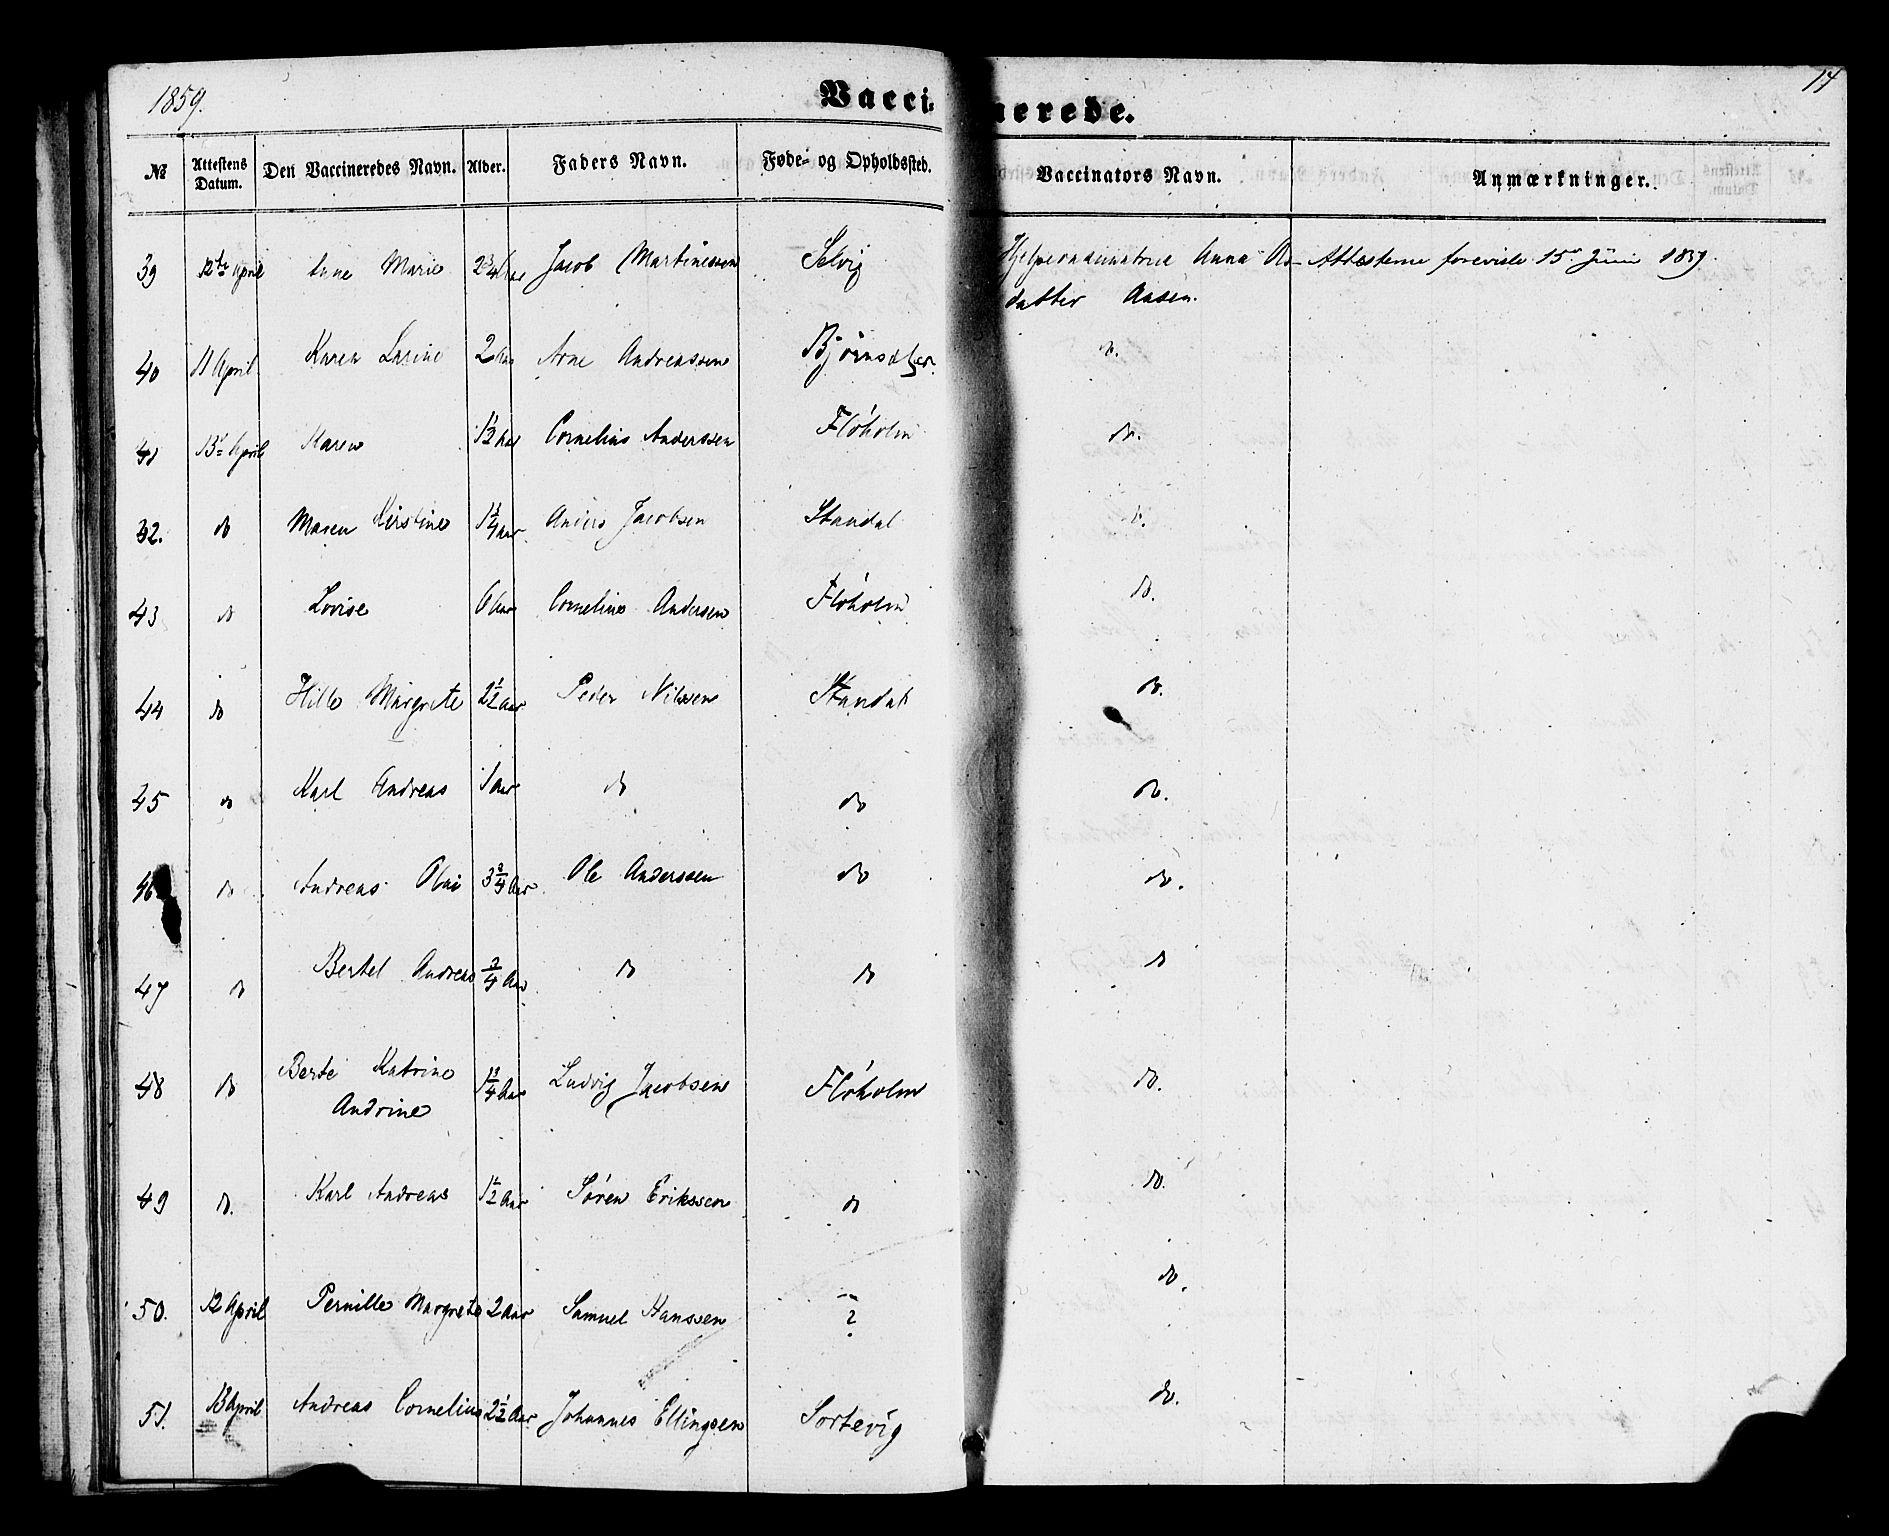 1859.
14
Vaccinerede.
№ Attestens Datum. Den Vaccineredes Navn. Alder. Faders Navn. Føde- og Opholdssted. Vaccinators Navn. Anmærkninger.
39 12te April Anne Marie 2 3/4 Aar Jacob Martinussen Selvig Anna Attesterne foreviste 15de Juni 1859.
datter Aasen.
40 11 April Karen Larine 2 Aar Arne Andreassen do.
41 13de April Karen 1 1/2 Aar Cornelius Anderssen Fløholm do.
32. do Maren Kirstine 1 3/4 Aar Anders Jacobsen Standal do.
43 do Lovise 6 Aar Cornelius Andersen Fløholm do.
44 do Margrete 2 1/2 Aar Peder Nilssen Standal do.
45 do Karl Andreas 1 Aar do do do.
46 do Andreas Olai 3 3/4 Aar Ole Anderssen do do.
47 do Bertel Andreas 3/4 Aar do do do
48 do Berte Katrine 1 3/4 Aar Ludvig Jacobsen Fløholm do.
Andrine
49 do. Karl Andreas 1 1/2 Aar Søren Erikssen do do.
50. 12 April Pernille Margrete 2 Aar Samuel Hanssen ? do.
51. 13 April Andreas Cornelius 2 1/2 Aar Johannes Ellingsen Sortevig do.